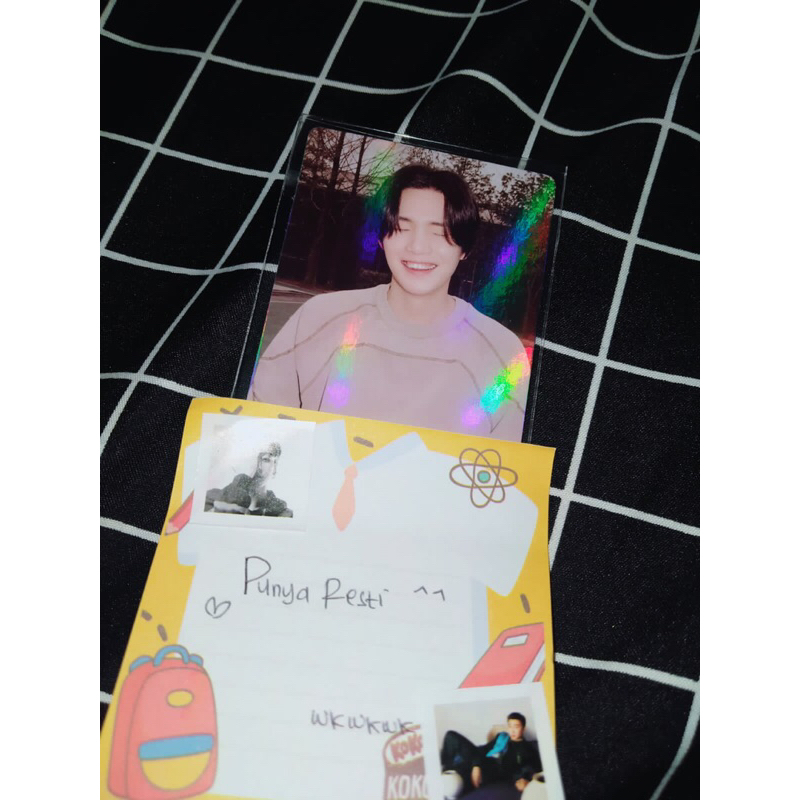 Punya Resti ^^
wkwkwk
KOKO
KOKO